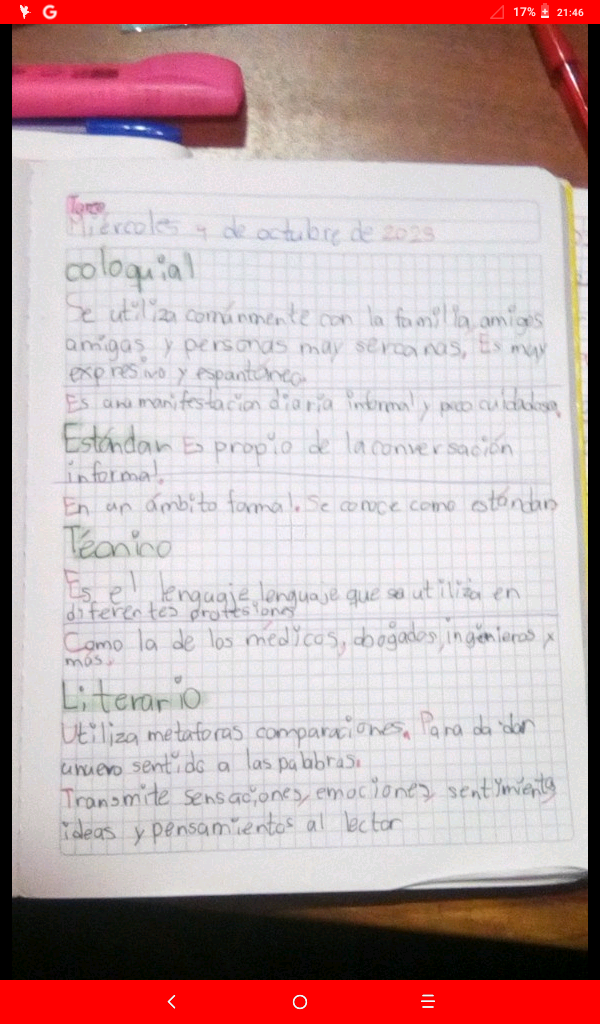 17% 21:46
Tarea
Miércoles 4 de octubre de 2023
coloquial
Se utiliza comúnmente con la familia, amigos
amigas y personas muy sercanas, Es muy
expresivo y espontáneo.
Es una manifestacion diaria informal y poco cuidadosa.
Estándar Es propio de la conversación
informal.
En un ámbito formal. Se conoce como estándar
Técnico
Es el lenguaje lenguaje que se utiliza en
diferentes profesiones
Como la de los médicos, abogados, ingenieros y
más.
Literario
Utiliza metaforas comparaciones. Para da dar
unuevo sentido a las palabras.
Transmite sensaciones, emociones, sentimients
ideas y pensamientos al lector